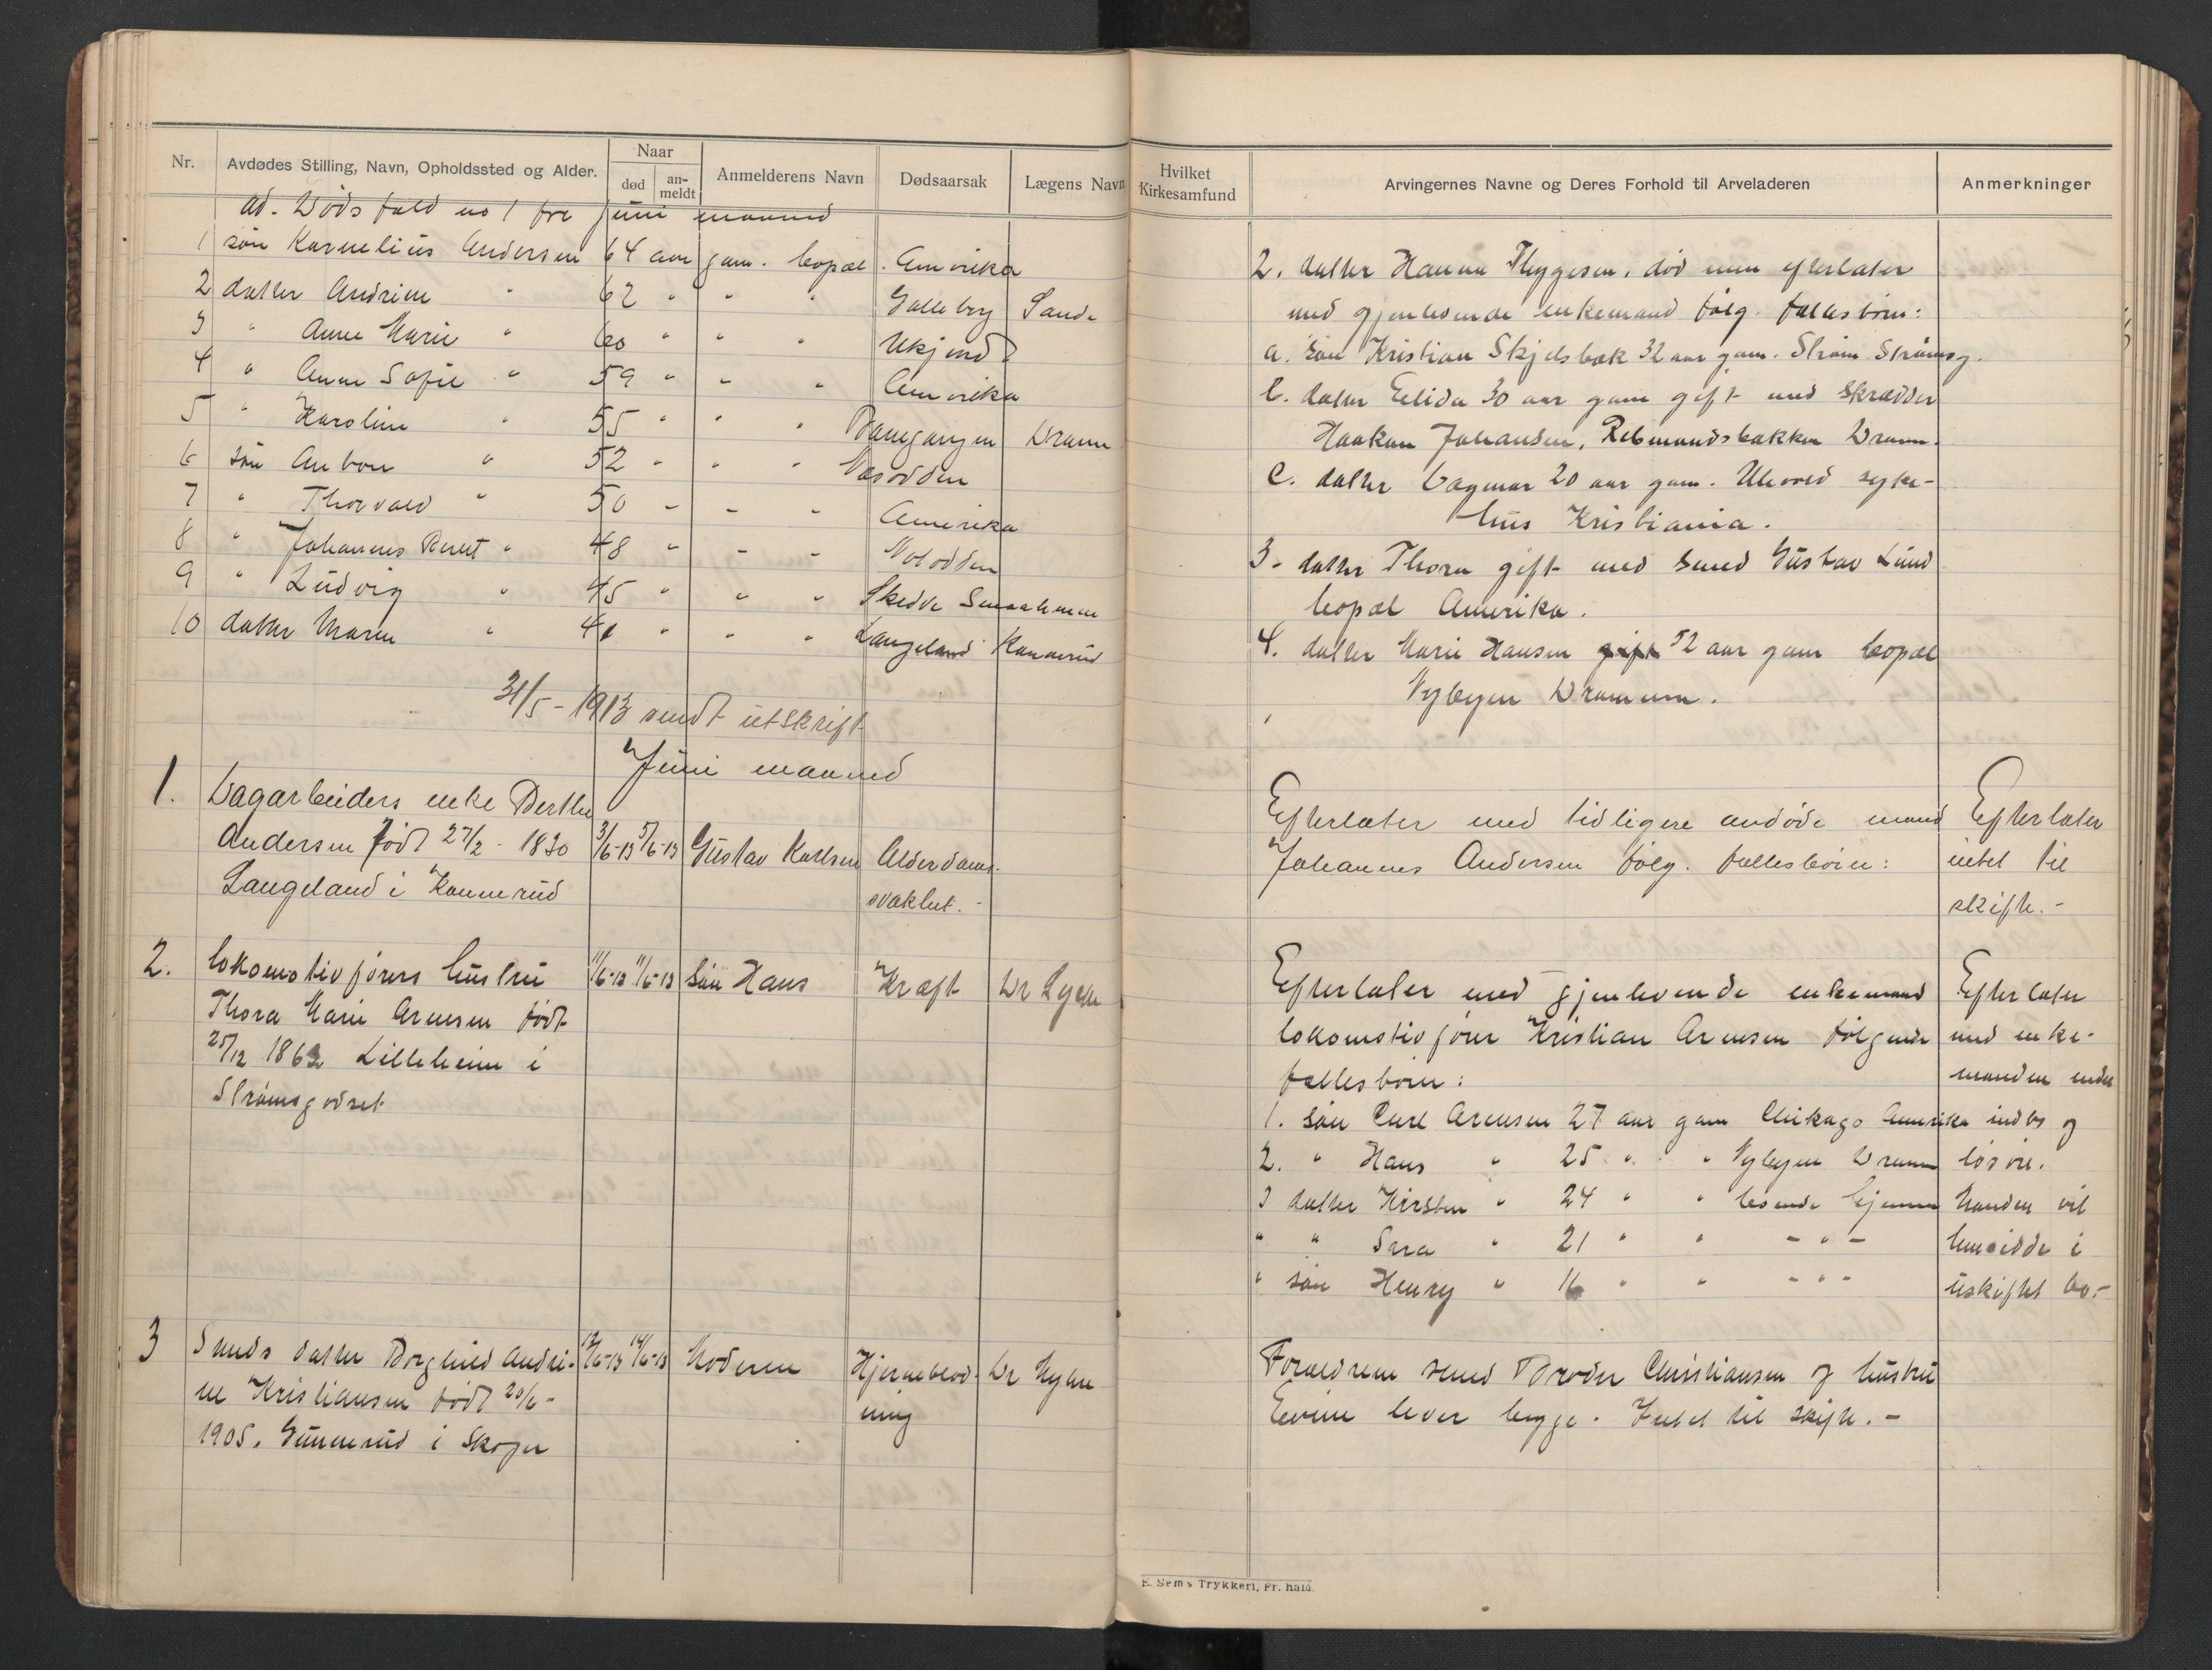 Nr.
Avdødes Stilling, Navn, Opholdssted og Alder.
Naar
død
an-
meldt
Anmelderens Navn
Dødsaarsak
Lægens Navn
ad. Dødsfald no 1 fra Juni maaned
1 søn Kornelius Andersen 64 aar gam. bopæl. Amerika
2 datter Andrine " 62 " " " Galleberg Sande
3 " Anne Marie " 60 " " " Ukjendt
4 " Anne Sofie " 59 " " " Amerika
5 " Karoline " 55 " " " Dramm
6 søn Anton " 52 " " "
7 " Thorvald " 50 " " " Amerika
8 " Johannes Berut " 48 " " " Notodden
9 " Ludvig " 45 " " "
10 datter Maren " 41 " " " Langeland Konnerud
31/5-1913 sendt utskrift
Juni maaned
1. Dagarbeiders enke Berthe
Andersen født 27/2 - 1830 3/6-13 5/6-13 Gustav Karlsen Alderdoms-
Langeland i Konnerud svakhet.-
2. Lokomotivførers hustru 11/6-13 11/6-13 søn Hans Kræft Dr Lyche
Thora Marie Arnesen født
25/12 1862 Lilleheim i
Strømsgodset
3 Smeds datter Borghild Andri- 13/6-13 14/6-13 Moderen Hjerneblød- Dr
ne Kristiansen født 20/6- ning
1905. Gunnerud i Skoger
Hvilket
Kirkesamfund
Arvingernes Navne og Deres Forhold til Arveladeren
Anmerkninger
2. datter Hanna Thygesen, død men efterlater
med gjenlevende enkemand følg. fællesbørn:
a. søn Kristian Skjelsbæk 32 aar gam. Strøm Strømsg.
b. datter Elida 30 aar gam gift med skrædder
Haakon Johansen, Rebmandsbakken Dramm.
c. datter Dagmar 20 aar gam. Ullevold syke-
hus Kristiania.
3. datter Thora gift med smed Gustav Lund
bopæl Amerika.
4. datter Marie Hansen gift 52 aar gam bopæl
Nybyen Drammen.
Efterlater med tidligere avdøde mand Efterlater
Johannes Andersen følg. fællesbørn: intet til
skifte.-
Efterlater med gjenlevende enkemand Efterlater
lokomotivfører Kristian Arnesen følgende med enke-
fællesbørn: manden endel
1. søn Carl Arnesen 27 aar gam Chikago Amerika indbo og
2. " Hans " 25 " " Nybyen Dramm løsøre.
3 datter Kirsten " 24 " " boende hjemme Manden vil
" " Sara " 21 " " - " - hensidde i
" søn Henry " 16 " " - " - uskiftet bo.-
Forældrene smed Broder Christiansen og hustru
lever begge. Intet til skifte.-
E. Sem's Trykkeri, Fr.hald.